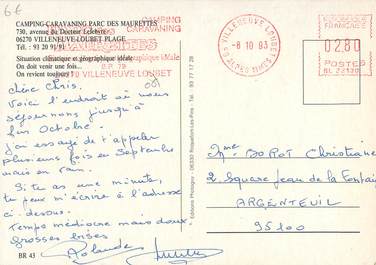 6€
CAMPING-CARAVANING PARC DES MAURETTES
730, avenue du Docteur Lefebvre
06270 VILLENEUVE-LOUBET PLAGE
Tél. : 93 20 91 91
Situation climatique et géographique idéale
On doit venir une fois
On revient toujours
CAMPING
CARAVANING
MAURETTES
B.P. 79
06270 VILLENEUVE LOUBET
VILLENEUVE-LOUBET
-8 10 93
ALPES MMES
REPUBLIQUE
FRANCAISE
2,80
POSTES
Chère Chris.
Voici l'endroit où nous
séjournons jusqu'à
fin Octobre.
J'ai essayé de t'appeler
plusieurs fois en Septembre
mais en vain.
Si tu as une minute,
tu peux m'écrire à l'adresse
ci-dessus.
Temps médiocre mais doux
Grosses bises
Rolande
BR 43
Mme DOROT Christiane
2. Square Jean de la Fontaine
ARGENTEUIL
95100